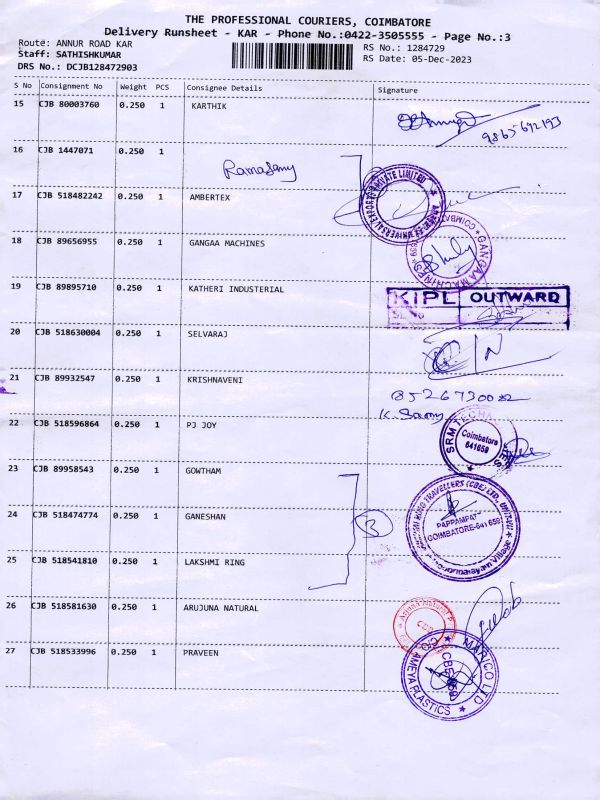 THE PROFESSIONAL COURIERS, COIMBATORE
Delivery Runsheet - KAR - Phone No.:0422-3505555 - Page No.:3
Route: ANNUR ROAD KAR
RS No.: 1284729
Staff: SATHISHKUMAR
RS Date: 05-Dec-2023
DRS No.: DCJB128472903
S No Consignment No Weight PCS Consignee Details Signature
15 CJB 80003760 0.250 1 KARTHIK
9865692193
16 CJB 1447071 0.250 1
Ramasamy
17 CJB 518482242 0.250 1 AMBERTEX
18 CJB 89656955 0.250 1 GANGAA MACHINES
GANGAA MACHINES
19 CJB 89895710 0.250 1 KATHERI INDUSTERIAL
KIPL OUTWARD
20 CJB 518630004 0.250 1 SELVARAJ
21 CJB 89932547 0.250 1 KRISHNAVENI
8526730022
K. Samy
22 CJB 518596864 0.250 1 PJ JOY
SRM TECH
Coimbatore
641659
23 CJB 89958543 0.250 1 GOWTHAM
TRAVELLERS (CBE) LTD., UNIT-VII
24 CJB 518474774 0.250 1 GANESHAN
3
PAPPAMPATTI
COIMBATORE-641659
25 CJB 518541810 0.250 1 LAKSHMI RING
26 CJB 518581630 0.250 1 ARUJUNA NATURAL
Arjuna Natural P
27 CJB 518533996 0.250 1 PRAVEEN
MARICO LTD
AMEYA PLASTICS